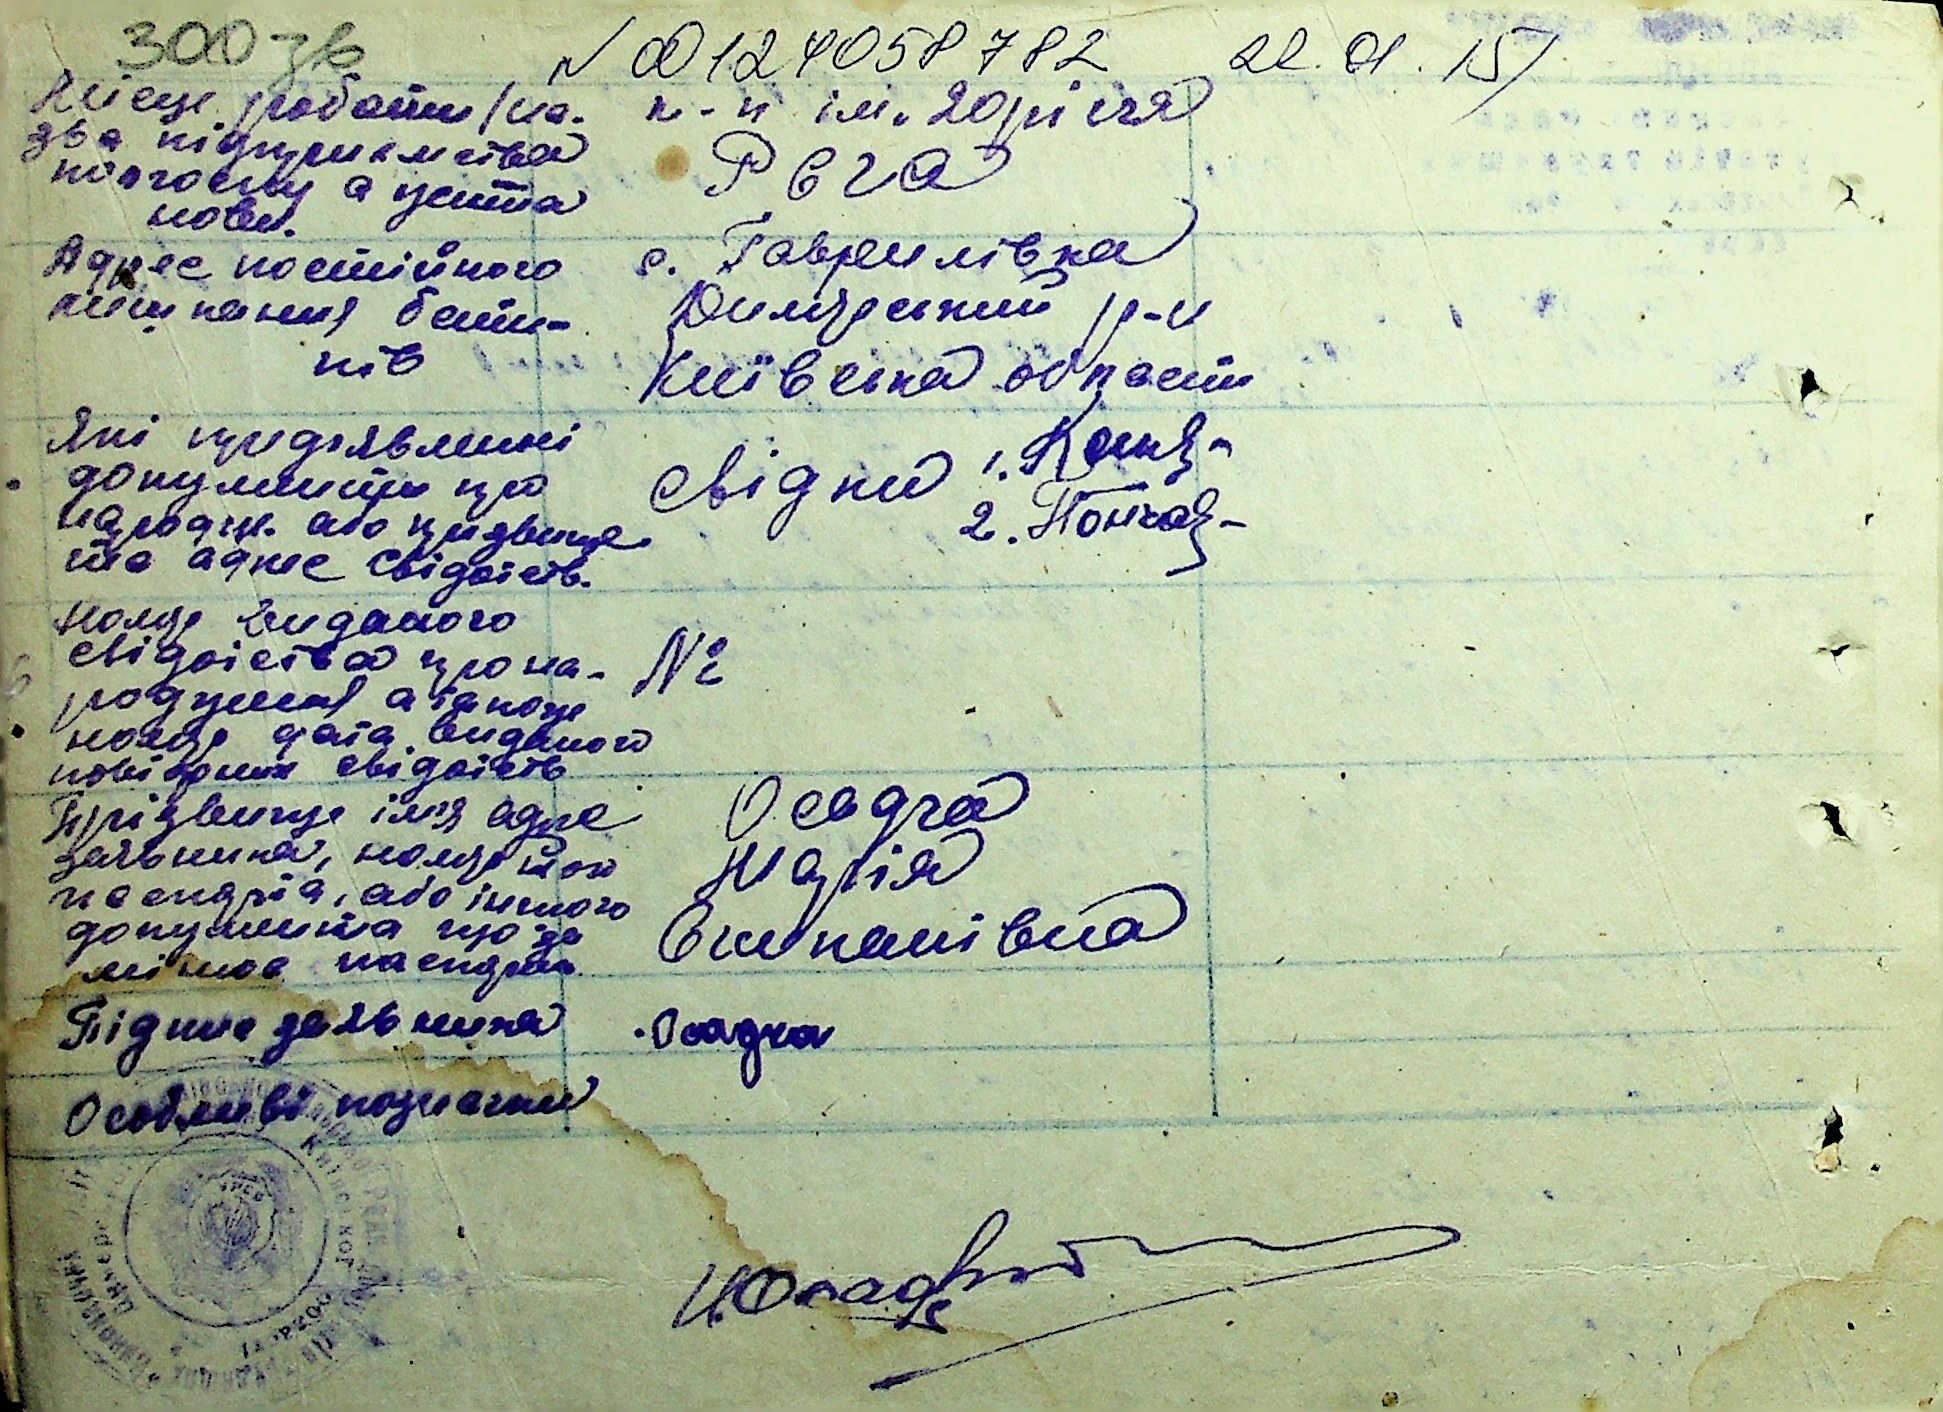 300 зв
N 00124058782 22.01.15
Місце роботи /на-
зва підприємства
колгоспу а уста
нови.
к-п ім. 20річчя
РСЧА
Адрес постійного
мешкання бать-
ків
с. Гаврилівка
Димерський р-н
Київська област
Які предявлені
документи про
народж. або прізвище
та адрес свідоцтв.
Свідки 1.
2.
Номер виданого
свідоцтва про на-
родження а також
номер дата виданого
повторних свідоцтв
№
Прізвище імя адрес
заявника, номер його
паспорта, або іншого
документа що за
мінює паспорт
Осадча
Марія
Степанівна
Підпис заявника
Осадча
Особливі позначки